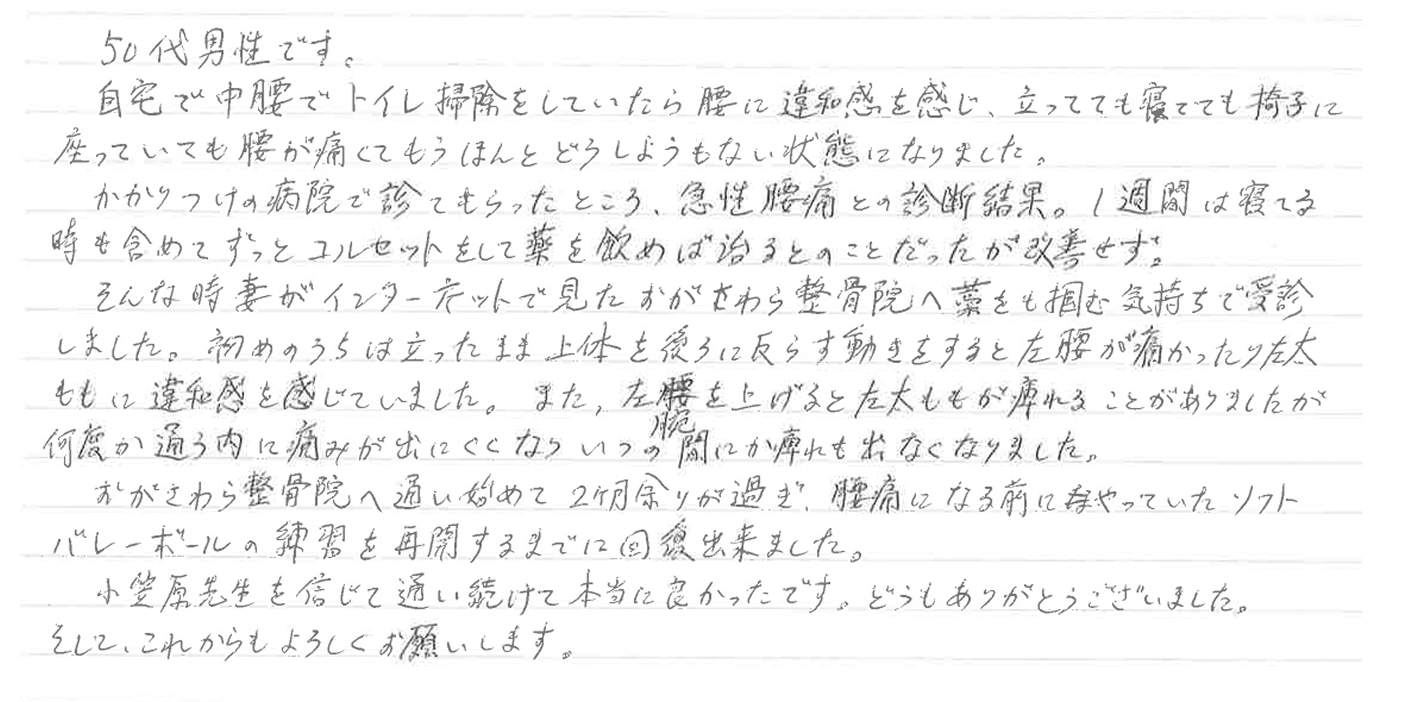 50代男性です。
自宅で中腰でトイレ掃除をしていたら腰に違和感を感じ、立ってても寝てても椅子に
座っていても腰が痛くてもうほんとどうしようもない状態になりました。
かかりつけの病院で診てもらったところ、急性腰痛との診断結果。1週間は寝てる
時も含めてずっとコルセットをして薬を飲めば治るとのことだったが改善せず。
そんな時妻がインターネットで見たおがさわら整骨院へ藁をも掴む気持ちで受診
しました。初めのうちは立ったまま上体を後ろに反らす動きをすると左腰が痛かったり左太
ももに違和感を感じていました。また、左腕を上げると左太ももが痺れることがありましたが
何度か通う内に痛みが出にくくなりいつの間にか痺れも出なくなりました。
おがさわら整骨院へ通い始めて2ケ月余りが過ぎ、腰痛になる前にやっていたソフト
バレーボールの練習を再開するまでに回復出来ました。
小笠原先生を信じて通い続けて本当に良かったです。どうもありがとうございました。
そして、これからもよろしくお願いします。